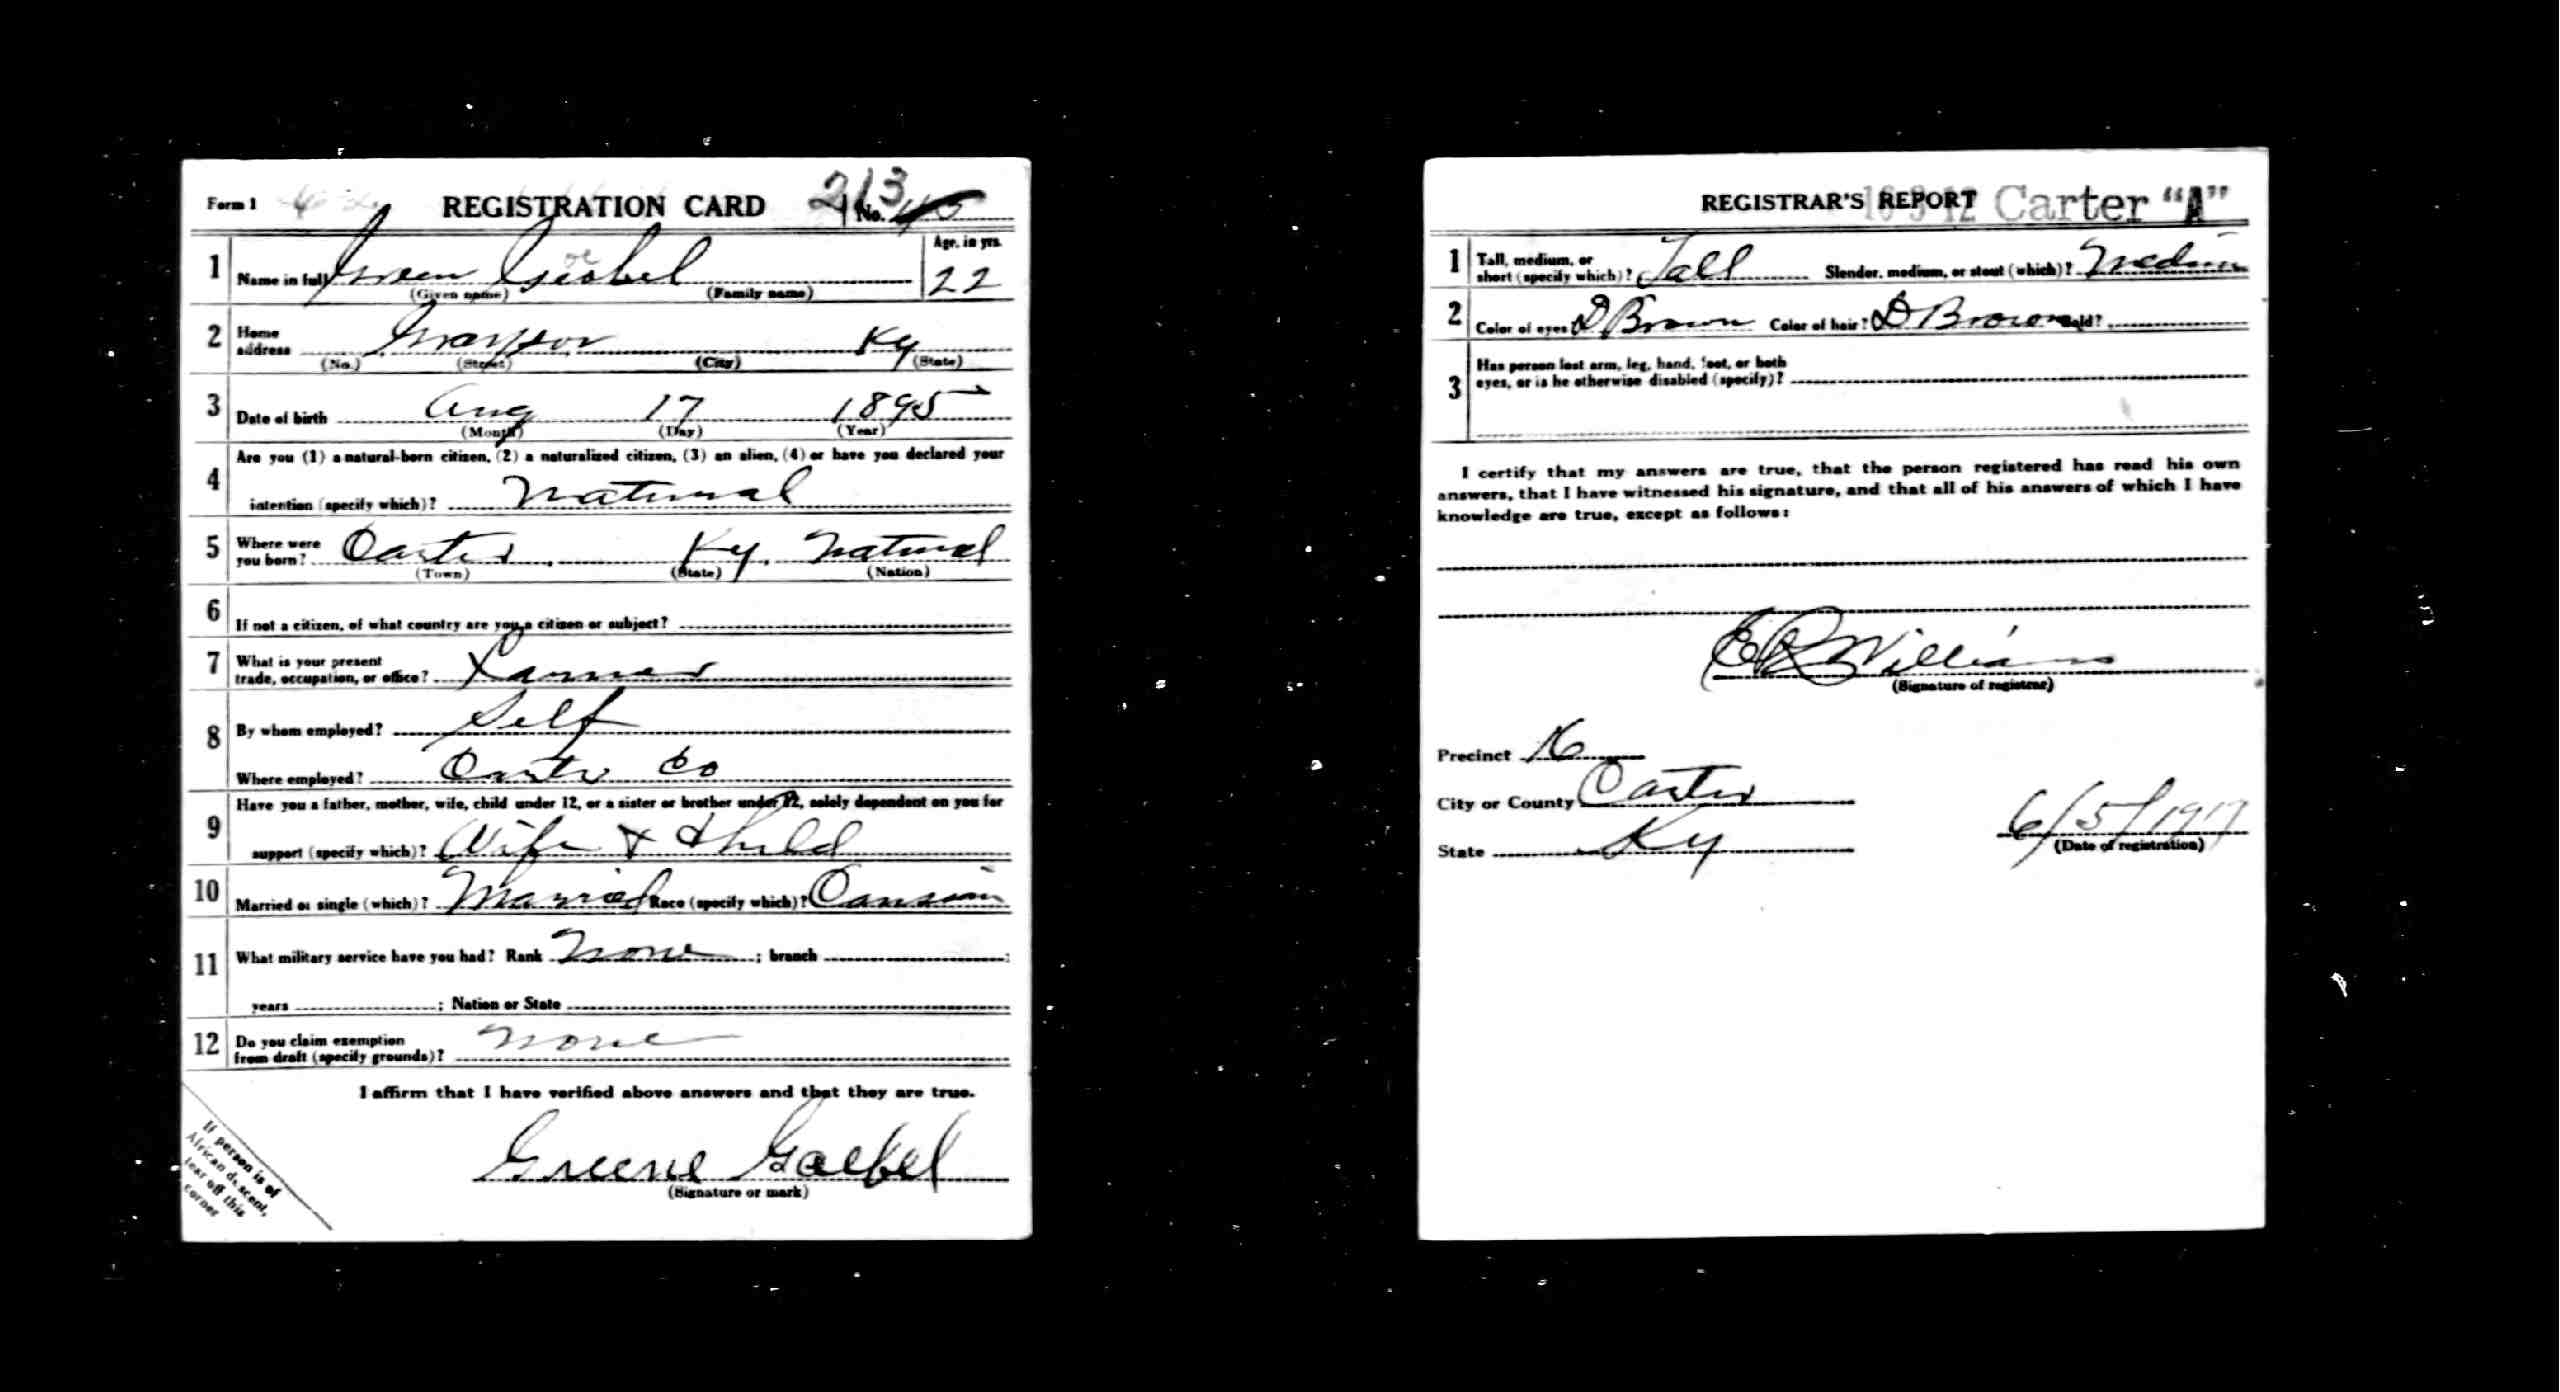 Form 1 REGISTRATION CARD 213 No. 45
1 Name in full Green Gisobel Age, in yrs. 22
oe
(Given name) (Family name)
2 Home address Grayson Ky
(No.) (Street) (City) (State)
3 Date of birth Aug 17 1895
(Month) (Day) (Year)
Are you (1) a natural-born citizen, (2) a naturalized citizen, (3) an alien, (4) or have you declared your
4 intention (specify which)? Natural
5 Where were you born? Carter, Ky, Natural
(Town) (State) (Nation)
6 If not a citizen, of what country are you a citizen or subject?
7 What is your present trade, occupation, or office? Farmer
8 By whom employed? Self
Where employed? Carter Co
Have you a father, mother, wife, child under 12, or a sister or brother under 12, solely dependent on you for
9 support (specify which)? Wife + Child
10 Married or single (which)? Married Race (specify which)? Causian
11 What military service have you had? Rank None ; branch ;
years ; Nation or State
12 Do you claim exemption from draft (specify grounds)? None
I affirm that I have verified above answers and that they are true.
Greene Goebel
(Signature or mark)
If person is of
African descent,
tear off this
corner
REGISTRAR'S REPORT 16-3-12 Carter "A"
1 Tall, medium, or short (specify which)? Tall Slender, medium, or stout (which)? Medium
2 Color of eyes? D Brown Color of hair? D Brown Bald?
3 Has person lost arm, leg, hand, foot, or both
eyes, or is he otherwise disabled (specify)?
I certify that my answers are true, that the person registered has read his own
answers, that I have witnessed his signature, and that all of his answers of which I have
knowledge are true, except as follows:
E R Williams
(Signature of registrar)
Precinct 16
City or County Carter
State Ky
6/5/1917
(Date of registration)